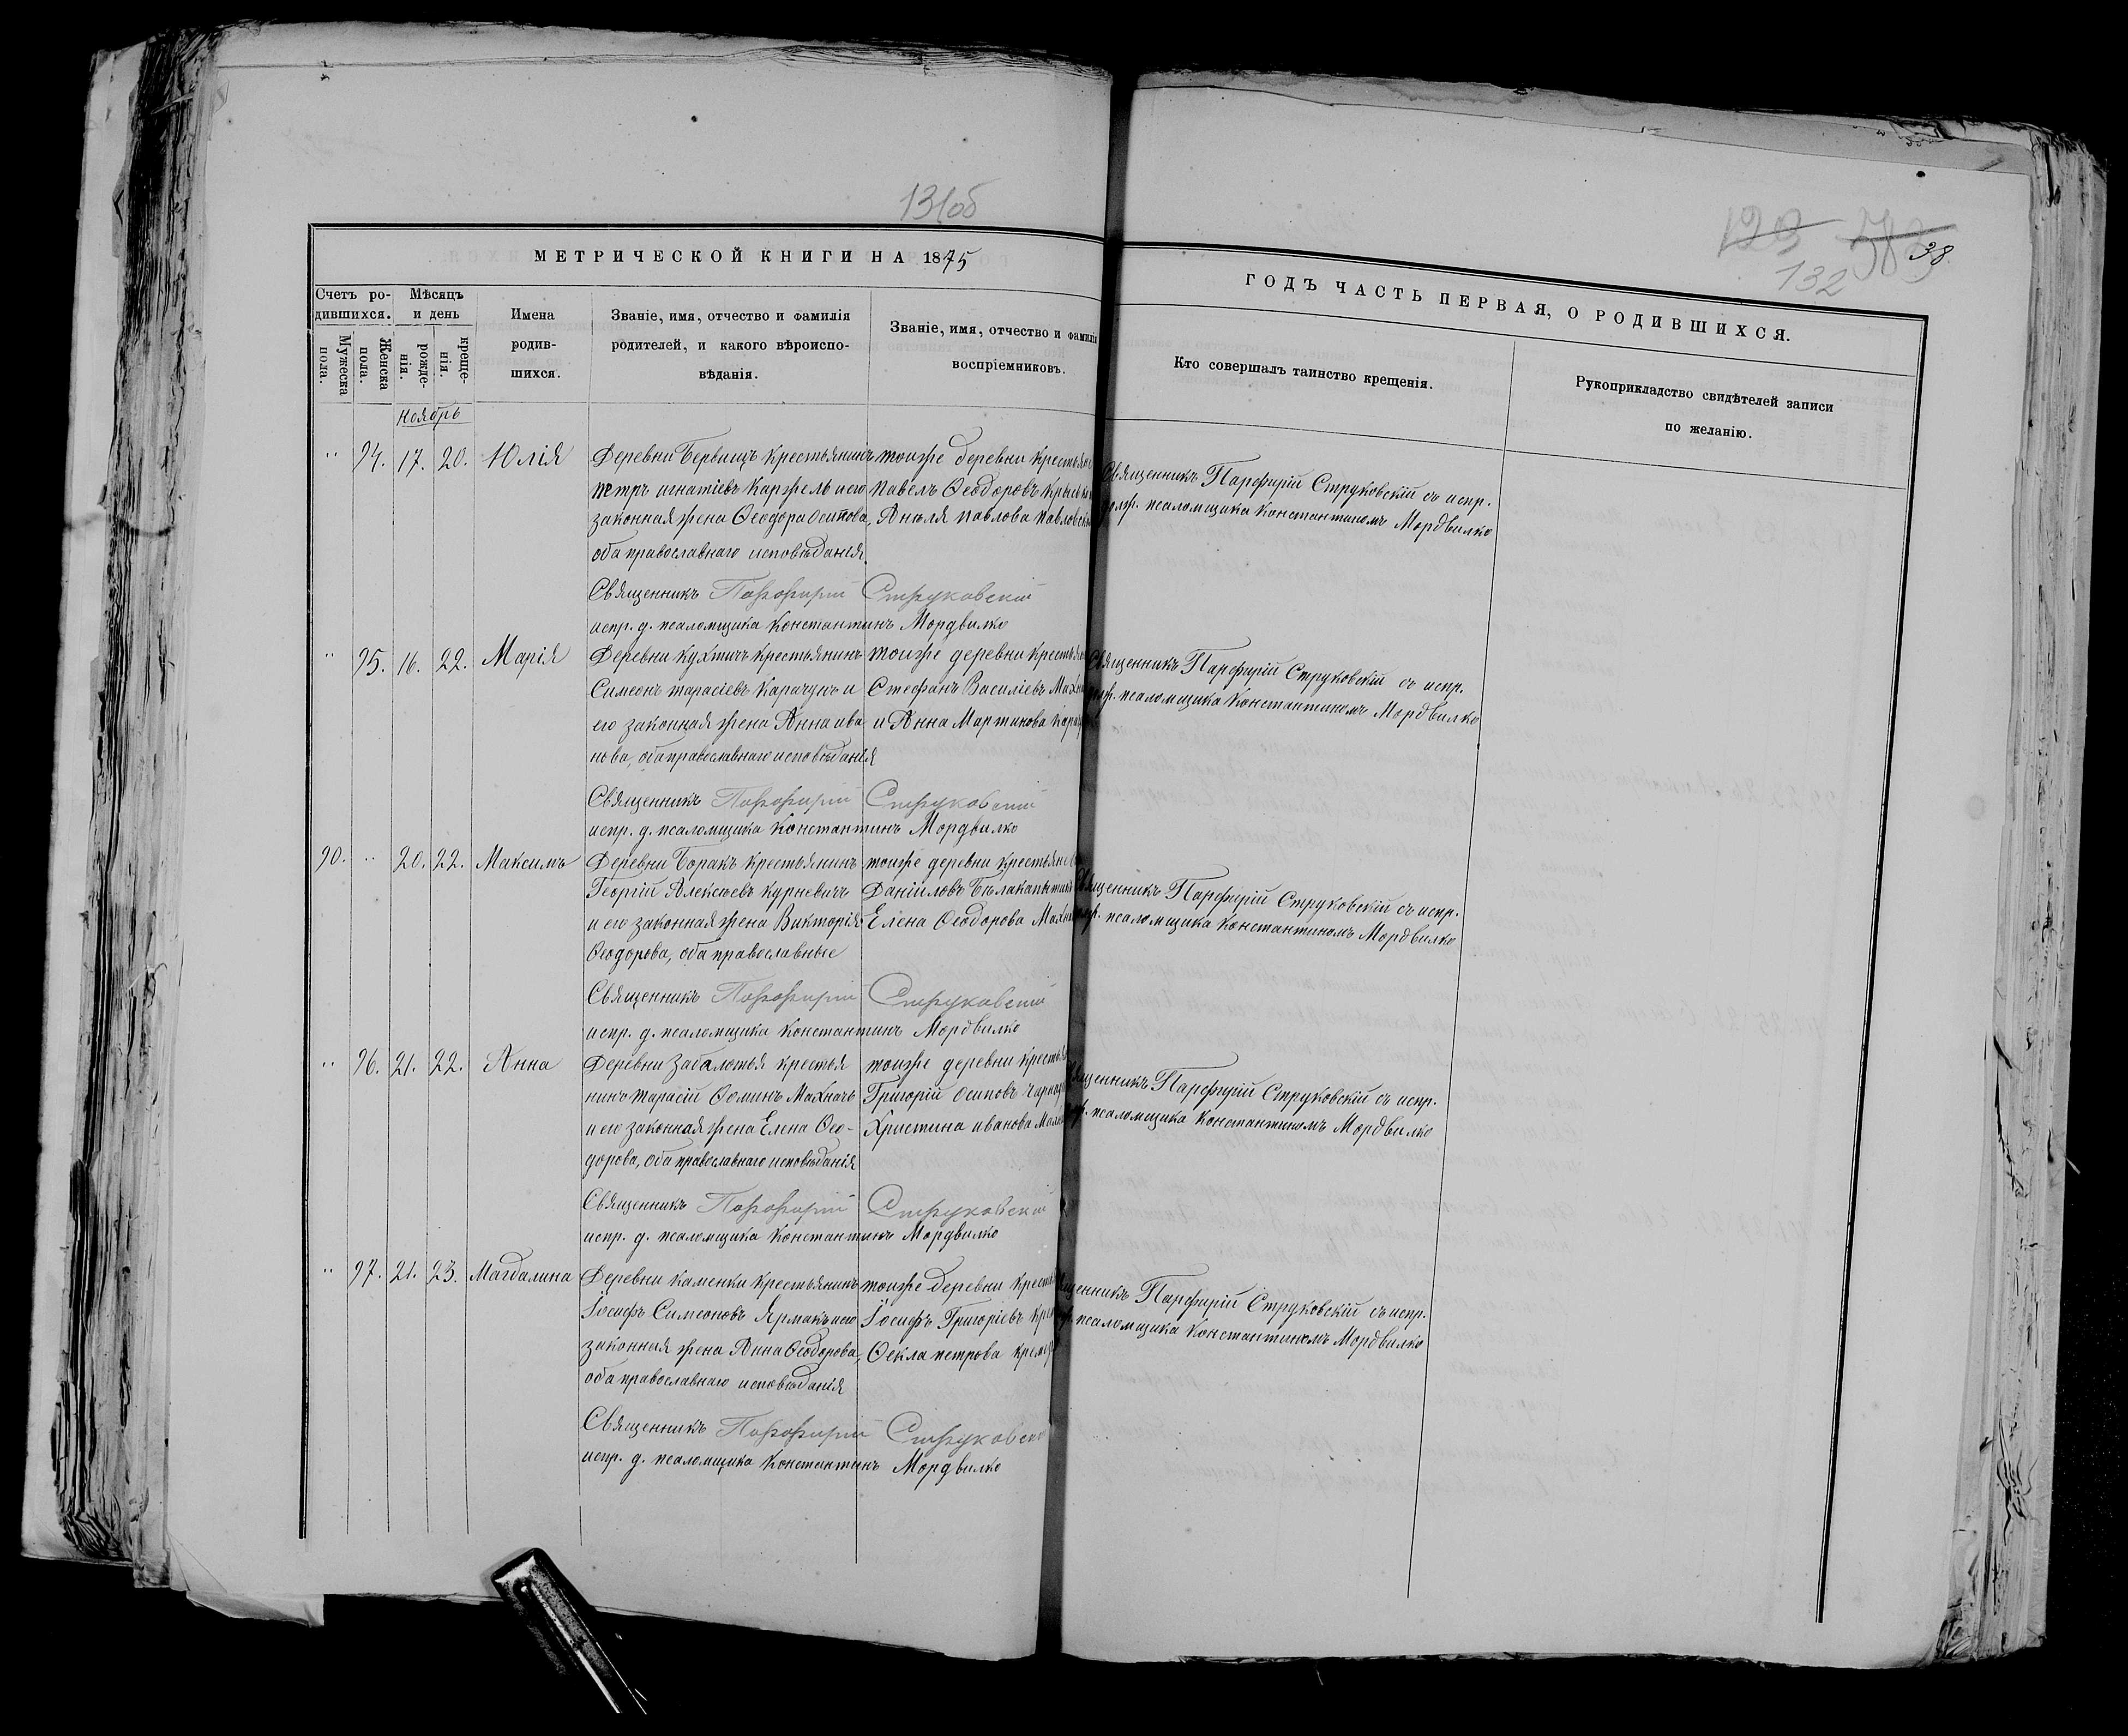 131об
129 582 38
132
МЕТРИЧЕСКОЙ КНИГИ НА 1875
ГОДЪ ЧАСТЬ ПЕРВАЯ, О РОДИВШИХСЯ.
Счетъ ро-
дившихся.
Мужеска
пола.
Женска
пола.
Мѣсяцъ
и день
рожде-
нія.
креще-
нія.
Имена
родив-
шихся.
Званіе, имя, отчество и фамилія
родителей, и какого вѣроиспо-
вѣданія.
Званіе, имя, отчество и фамилія
воспріемниковъ.
Кто совершалъ таинство крещенія.
Рукоприкладство свидѣтелей записи
по желанію.
Ноябрь
" 94. 17. 20. Юлія
Деревни Бервищъ крестьянинъ
Петръ Игнатіевъ Каржель и его
законная жена Ѳеодора Осипова,
оба православнаго исповѣданія.
тоиже деревни крестьяне
Павелъ Ѳеодоровъ
Анѣля Павлова
Священникъ Парфирій Струковскій съ испр.
долж. псаломщика Константиномъ Мордвилко
Священникъ Порфирій Струковскій
испр. д. псаломщика Константинъ Мордвилко
" 95. 16. 22. Марія
Деревни Кухтичъ крестьянинъ
Симеонъ Тарасіевъ Карачунъ и
его законная жена Анна Ива
нова, оба православнаго исповѣданія
тоиже деревни крестьяне
Стефанъ Василіевъ
и Анна Мартинова
Священникъ Парфирій Струковскій съ испр.
долж. псаломщика Константиномъ Мордвилко
Священникъ Порфирій Струковскій
испр. д. псаломщика Константинъ Мордвилко
90. " 20. 22. Максимъ
Деревни Боракъ крестьянинъ
Георгій Алексѣевъ Курневичъ
и его законная жена Викторія
Ѳеодорова, оба православные
тоиже деревни крестьяне
Даніиловъ
Елена Ѳеодорова
Священникъ Парфирій Струковскій съ испр.
долж. псаломщика Константиномъ Мордвилко
Священникъ Порфирій Струковскій
испр. д. псаломщика Константинъ Мордвилко
" 96. 21. 22. Анна
Деревни Забалотья крестья
нинъ Тарасій Ѳоминъ Махначъ
и его законная жена Елена Ѳео-
дорова, оба православнаго исповѣданія
тоиже деревни
Григорій Осиповъ
Христина Иванова
Священникъ Парфирій Струковскій съ испр.
псаломщика Константиномъ Мордвилко
Священникъ Порфирій Струковскій
испр. д. псаломщика Константинъ Мордвилко
" 97. 21. 23. Магдалина
Деревни Каменки крестьянинъ
Іосифъ Симеоновъ Ярмакъ и его
законная жена Анна Ѳеодорова,
оба православнаго исповѣданія
тоиже деревни
Іосифъ Григоріевъ
Ѳекла Петрова
Священникъ Парфирій Струковскій съ испр.
псаломщика Константиномъ Мордвилко
Священникъ Порфирій Струковскій
испр. д. псаломщика Константинъ Мордвилко